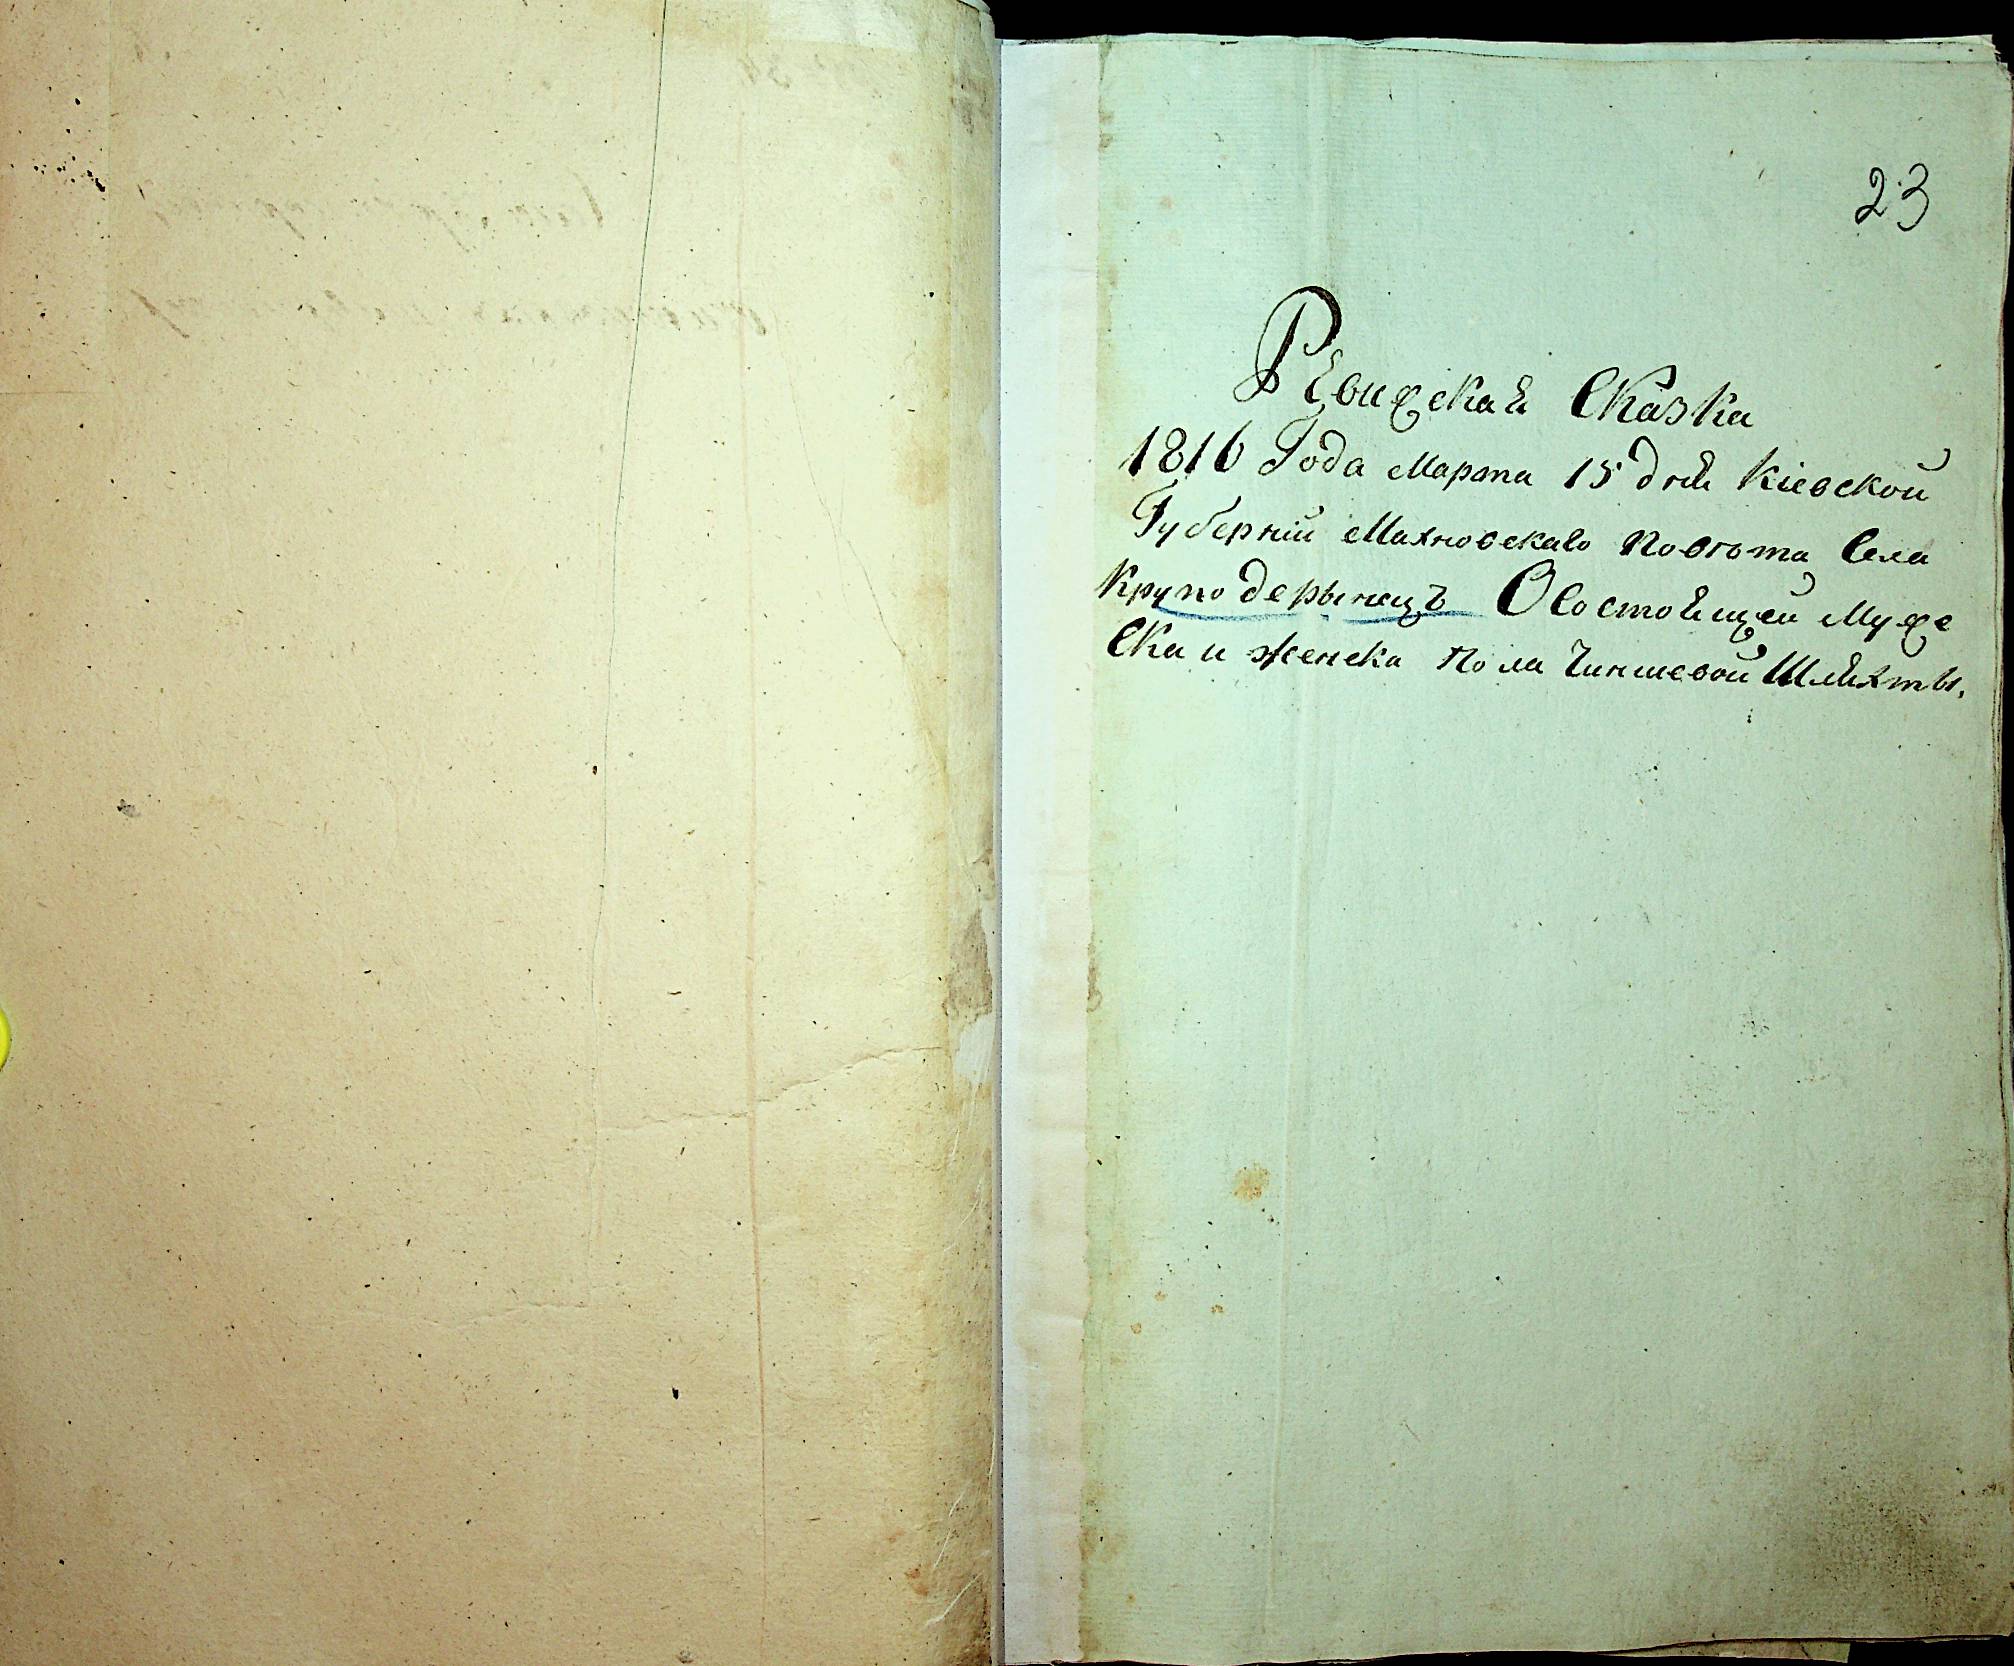 23
Ревижская Сказка
1816 Года Марта 15 дня Кіевской
Губерніи Махновскаго Повѣта Села
Круподерынецъ О Состоящей Муже
Ска и женска Пола Чиншевой Шляхты.